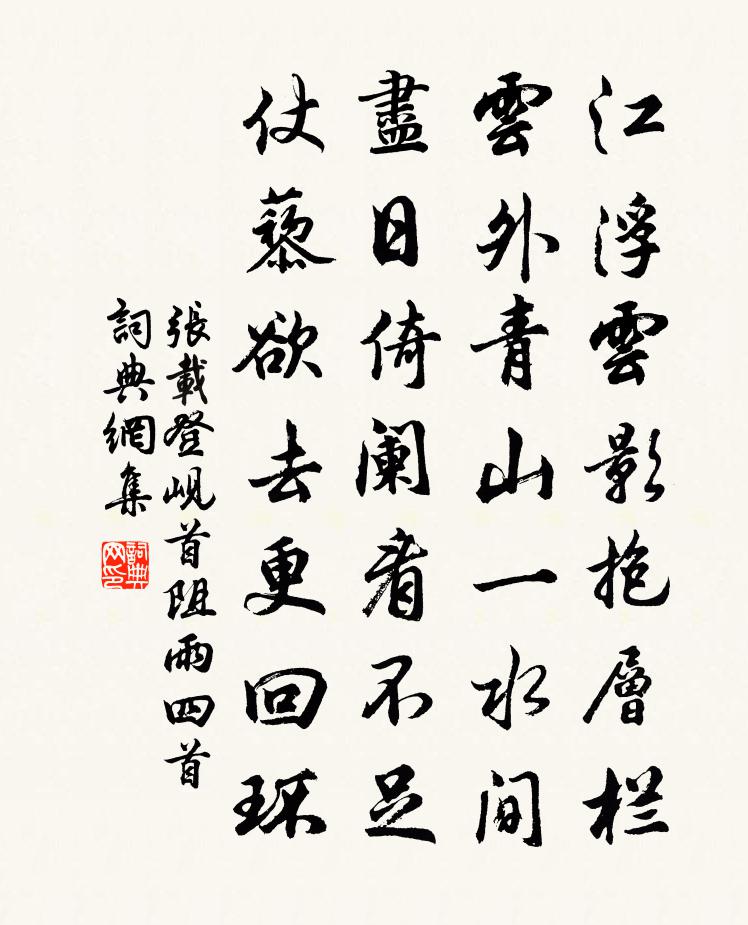 江浮雲影抱層栏
雲外青山一水間
盡日倚闌看不足
仗藜欲去更回环
張載登峴首阻雨四首
詞典網集
詞典网印